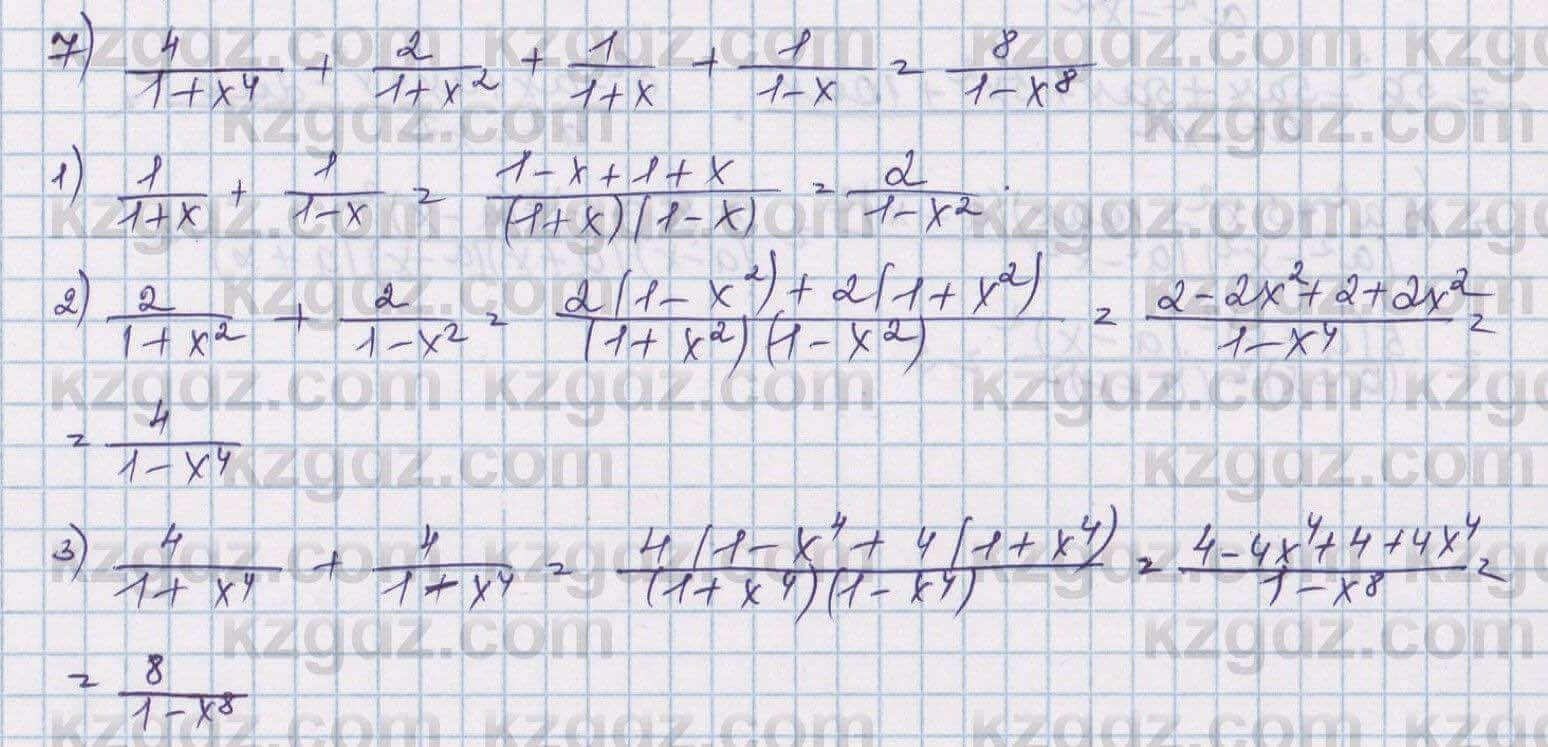 7) 4/(1+x⁴) + 2/(1+x²) + 1/(1+x) + 1/(1-x) = 8/(1-x⁸)
1) 1/(1+x) + 1/(1-x) = (1-x+1+x)/((1+x)(1-x)) = 2/(1-x²).
2) 2/(1+x²) + 2/(1-x²) = (2(1-x²)+2(1+x²))/((1+x²)(1-x²)) = (2-2x²+2+2x²)/(1-x⁴) =
= 4/(1-x⁴)
3) 4/(1+x⁴) + 4/(1-x⁴) = (4(1-x⁴+4(1+x⁴))/((1+x⁴)(1-x⁴)) = (4-4x⁴+4+4x⁴)/(1-x⁸) =
= 8/(1-x⁸)
kzgdz.com